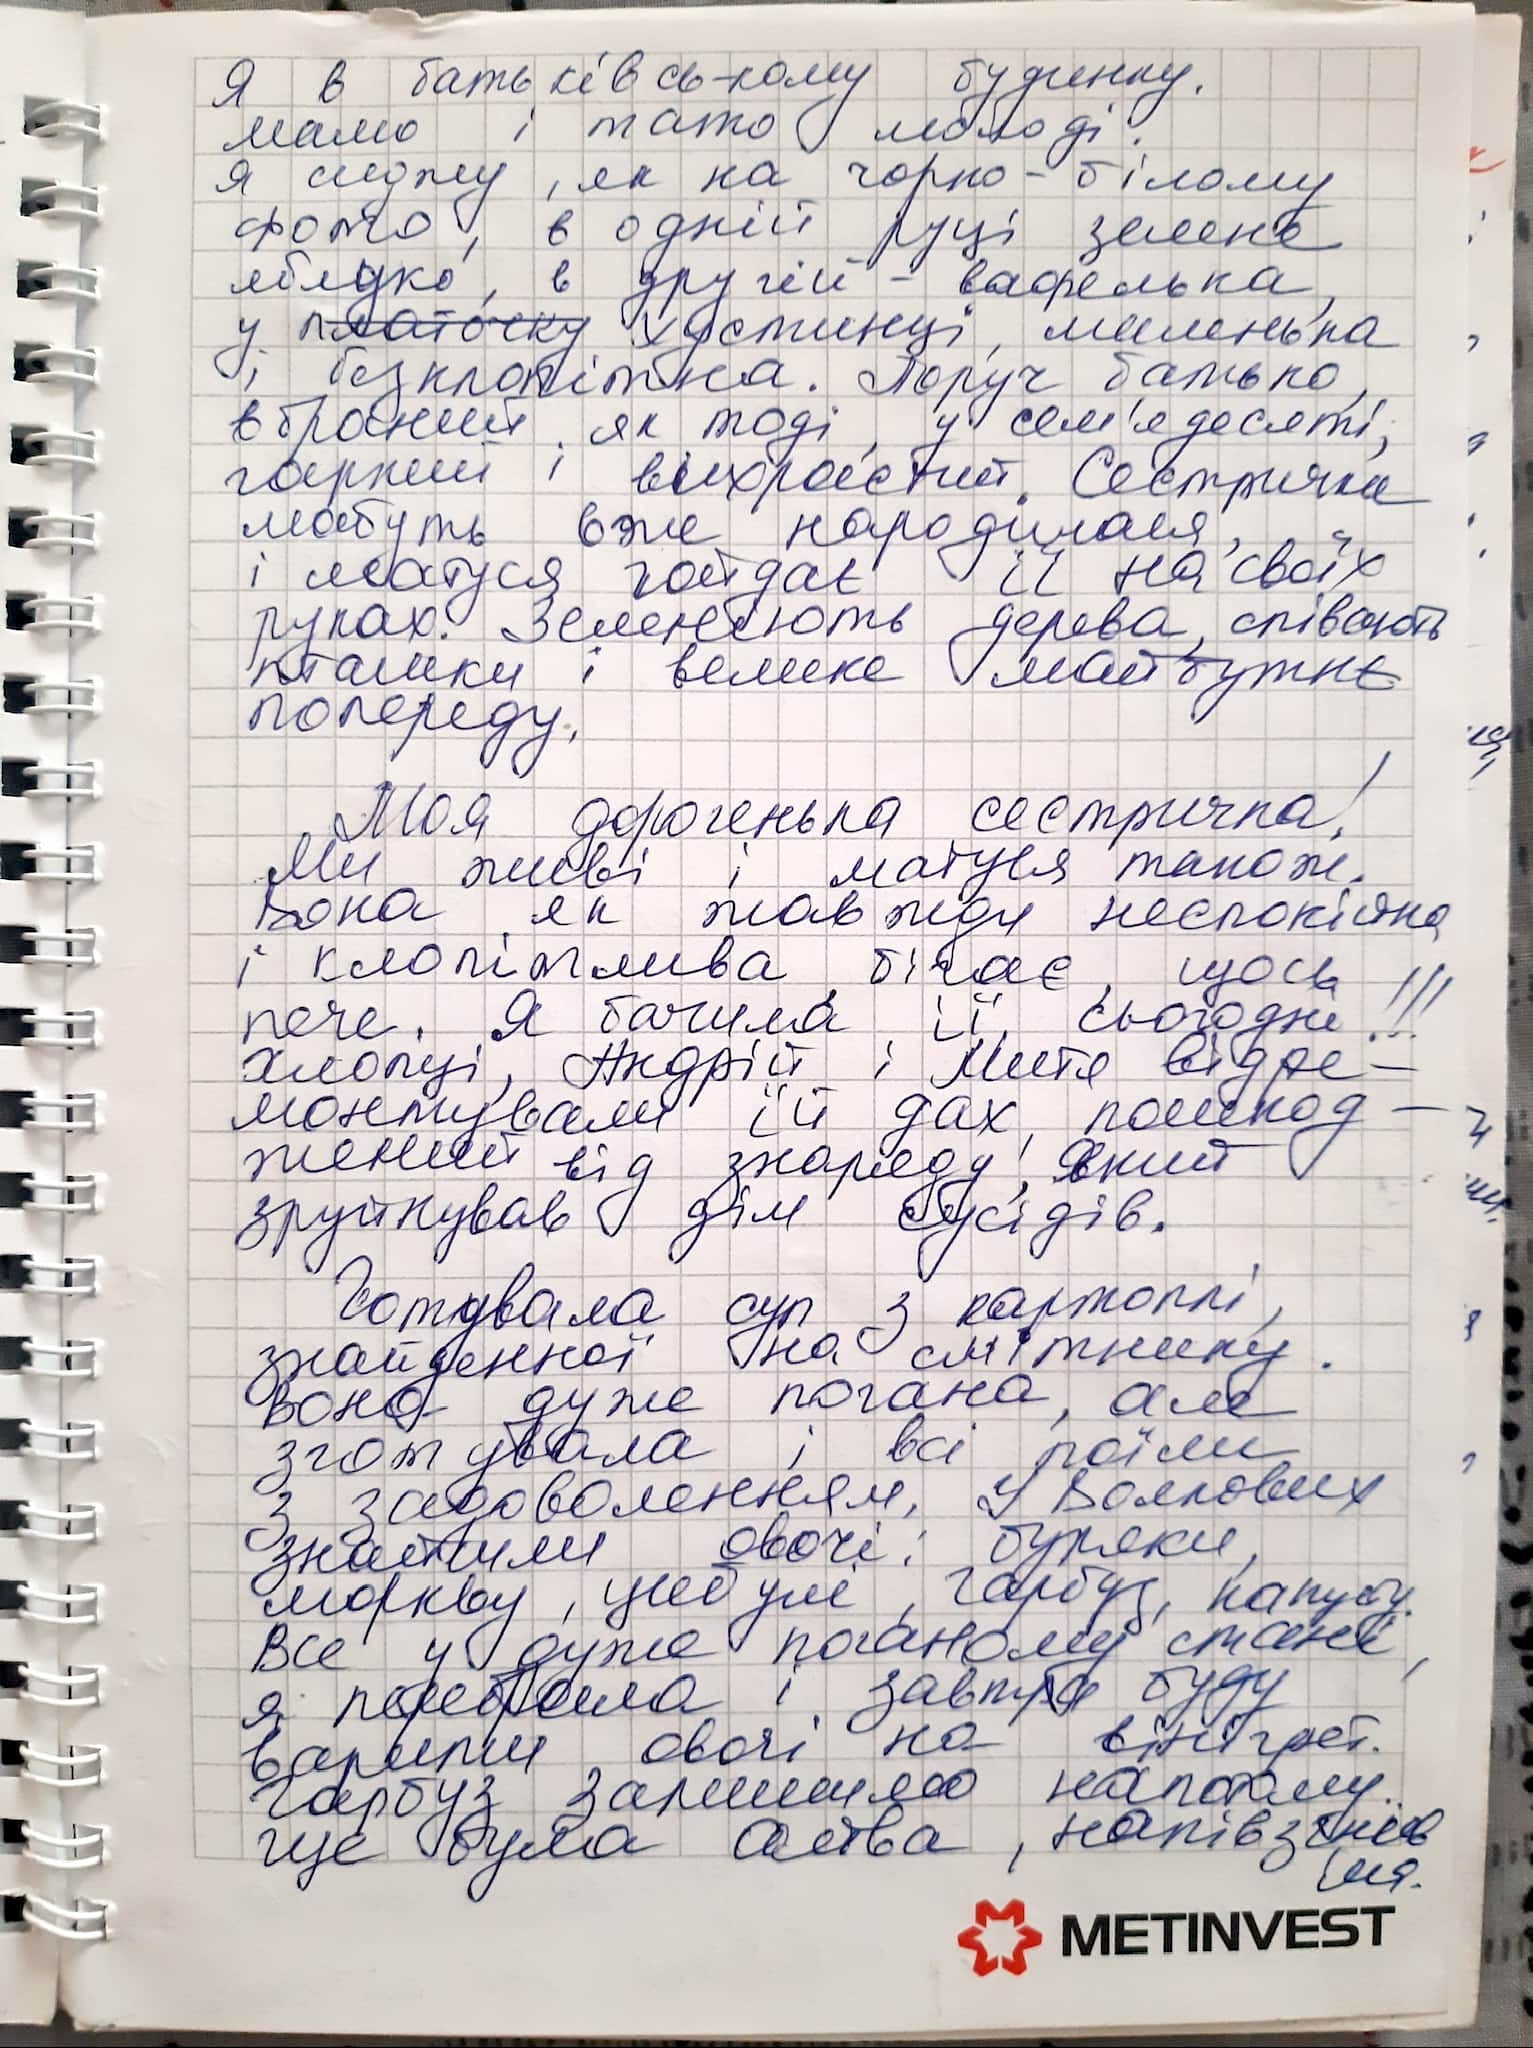 Я в батьківському будинку.
Мама і тато молоді.
Я сиджу, як на чорно-білому
фото, в одній руці зелене
яблуко, в другій - вафелька,
у платочку хустинці, миленька
і безклопітна. Поруч батько,
вбраний, як тоді, у сем'ядесяті,
гарний і вихрастий. Сестричка
мабуть вже народилася,
і матуся гойдає її на своїх
руках. Зеленіють дерева, співають
пташки і велике майбутнє
попереду.
Моя дорогенька сестричка!
Ми живі і матуся також.
Вона як завжди неспокійна
і клопітлива, бігає, щось
пече. Я бачила її сьогодні!!!
Хлопці, Андрій і Митя відре-
монтували їй дах, пошкод-
жений від снаряду, який
зруйнував дім сусідів.
Готувала суп з картоплі,
знайденної на смітнику.
Вона дуже погана, але
зготувала і всі поїли
з задоволенням. У Волкових
знайшли овочі: буряки,
моркву, цибулі, гарбуз, капусту.
Все у дуже поганому стані,
я перебрала і завтра буду
варити овочі на вінігрет.
Гарбуз залишила напотому..
Ще була айва, напівзгнив
ша.
METINVEST